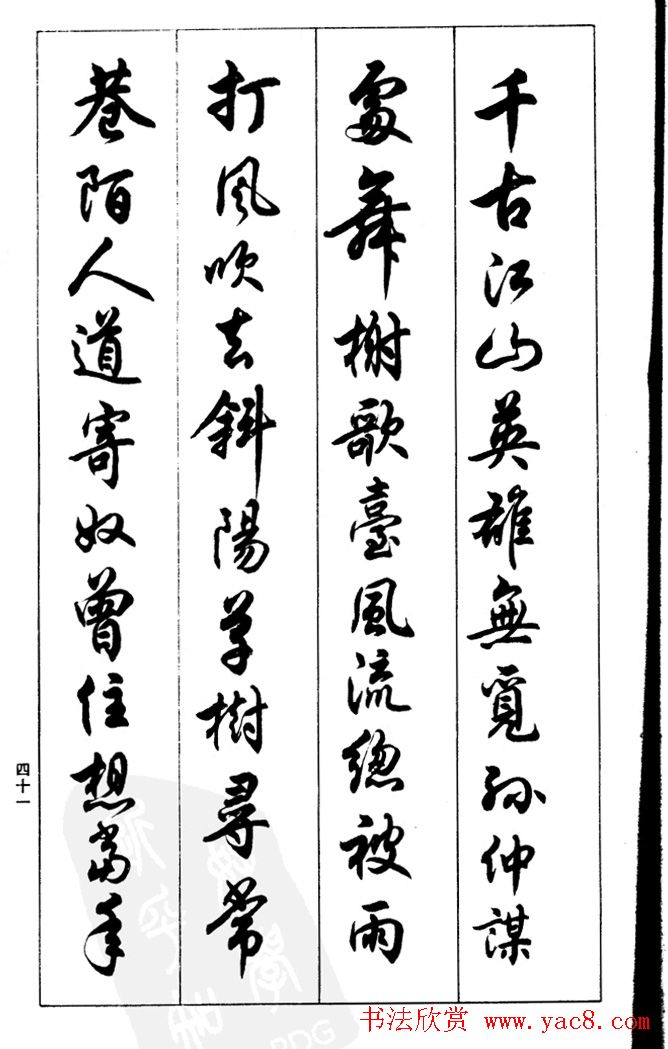 千古江山英雄無覓孫仲謀
處舞榭歌臺風流總被雨
打風吹去斜陽草樹尋常
巷陌人道寄奴曾住想當年
四十一
书法欣赏 www.yac8.com